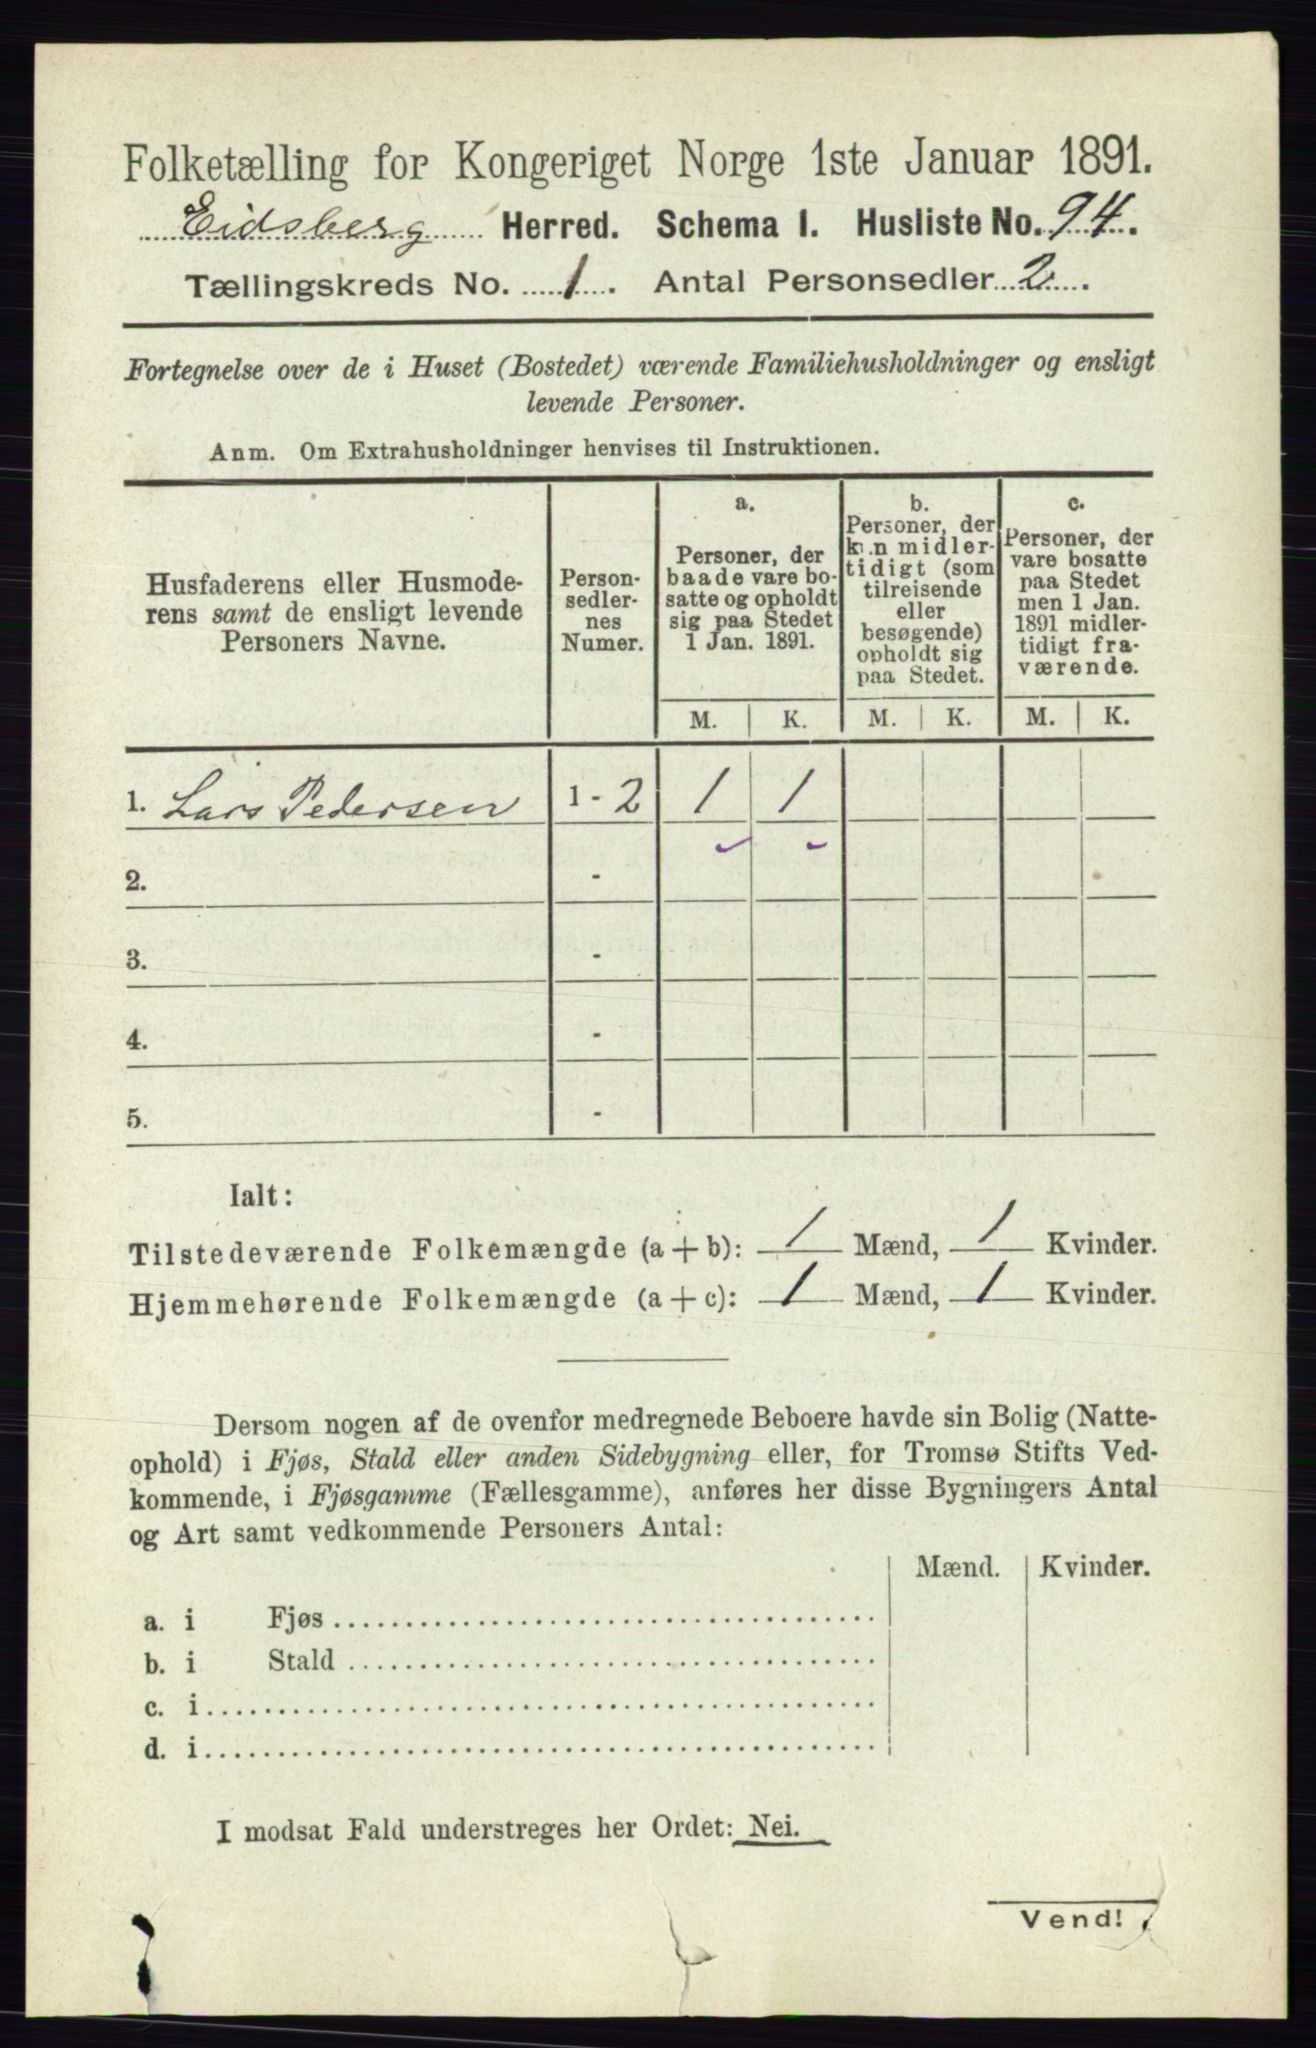 Folketælling for Kongeriget Norge 1ste Januar 1891.
Eidsberg Herred. Schema I. Husliste No. 94.
Tællingskreds No. 1. Antal Personsedler 2.
Fortegnelse over de i Huset (Bostedet) værende Familiehusholdninger og ensligt
levende Personer.
Anm. Om Extrahusholdninger henvises til Instruktionen.
Husfaderens eller Husmode-
rens samt de ensligt levende
Personers Navne.
Person-
sedler-
nes
Numer.
a.
Personer, der
baade vare bo-
satte og opholdt
sig paa Stedet
1 Jan. 1891.
b.
Personer, der
kun midler-
tidigt (som
tilreisende
eller
besøgende)
opholdt sig
paa Stedet.
c.
Personer, der
vare bosatte
paa Stedet
men 1 Jan.
1891 midler-
tidigt fra-
værende.
M. K. M. K. M. K.
1. Lars Pedersen 1 - 2 1 1
2. -
3. -
4. -
5. -
Ialt:
Tilstedeværende Folkemængde (a + b): 1 Mænd, 1 Kvinder.
Hjemmehørende Folkemængde (a + c): 1 Mænd, 1 Kvinder.
Dersom nogen af de ovenfor medregnede Beboere havde sin Bolig (Natte-
ophold) i Fjøs, Stald eller anden Sidebygning eller, for Tromsø Stifts Ved-
kommende, i Fjøsgamme (Fællesgamme), anføres her disse Bygningers Antal
og Art samt vedkommende Personers Antal:
Mænd. Kvinder.
a. i Fjøs
b. i Stald
c. i
d. i
I modsat Fald understreges her Ordet: Nei.
Vend!